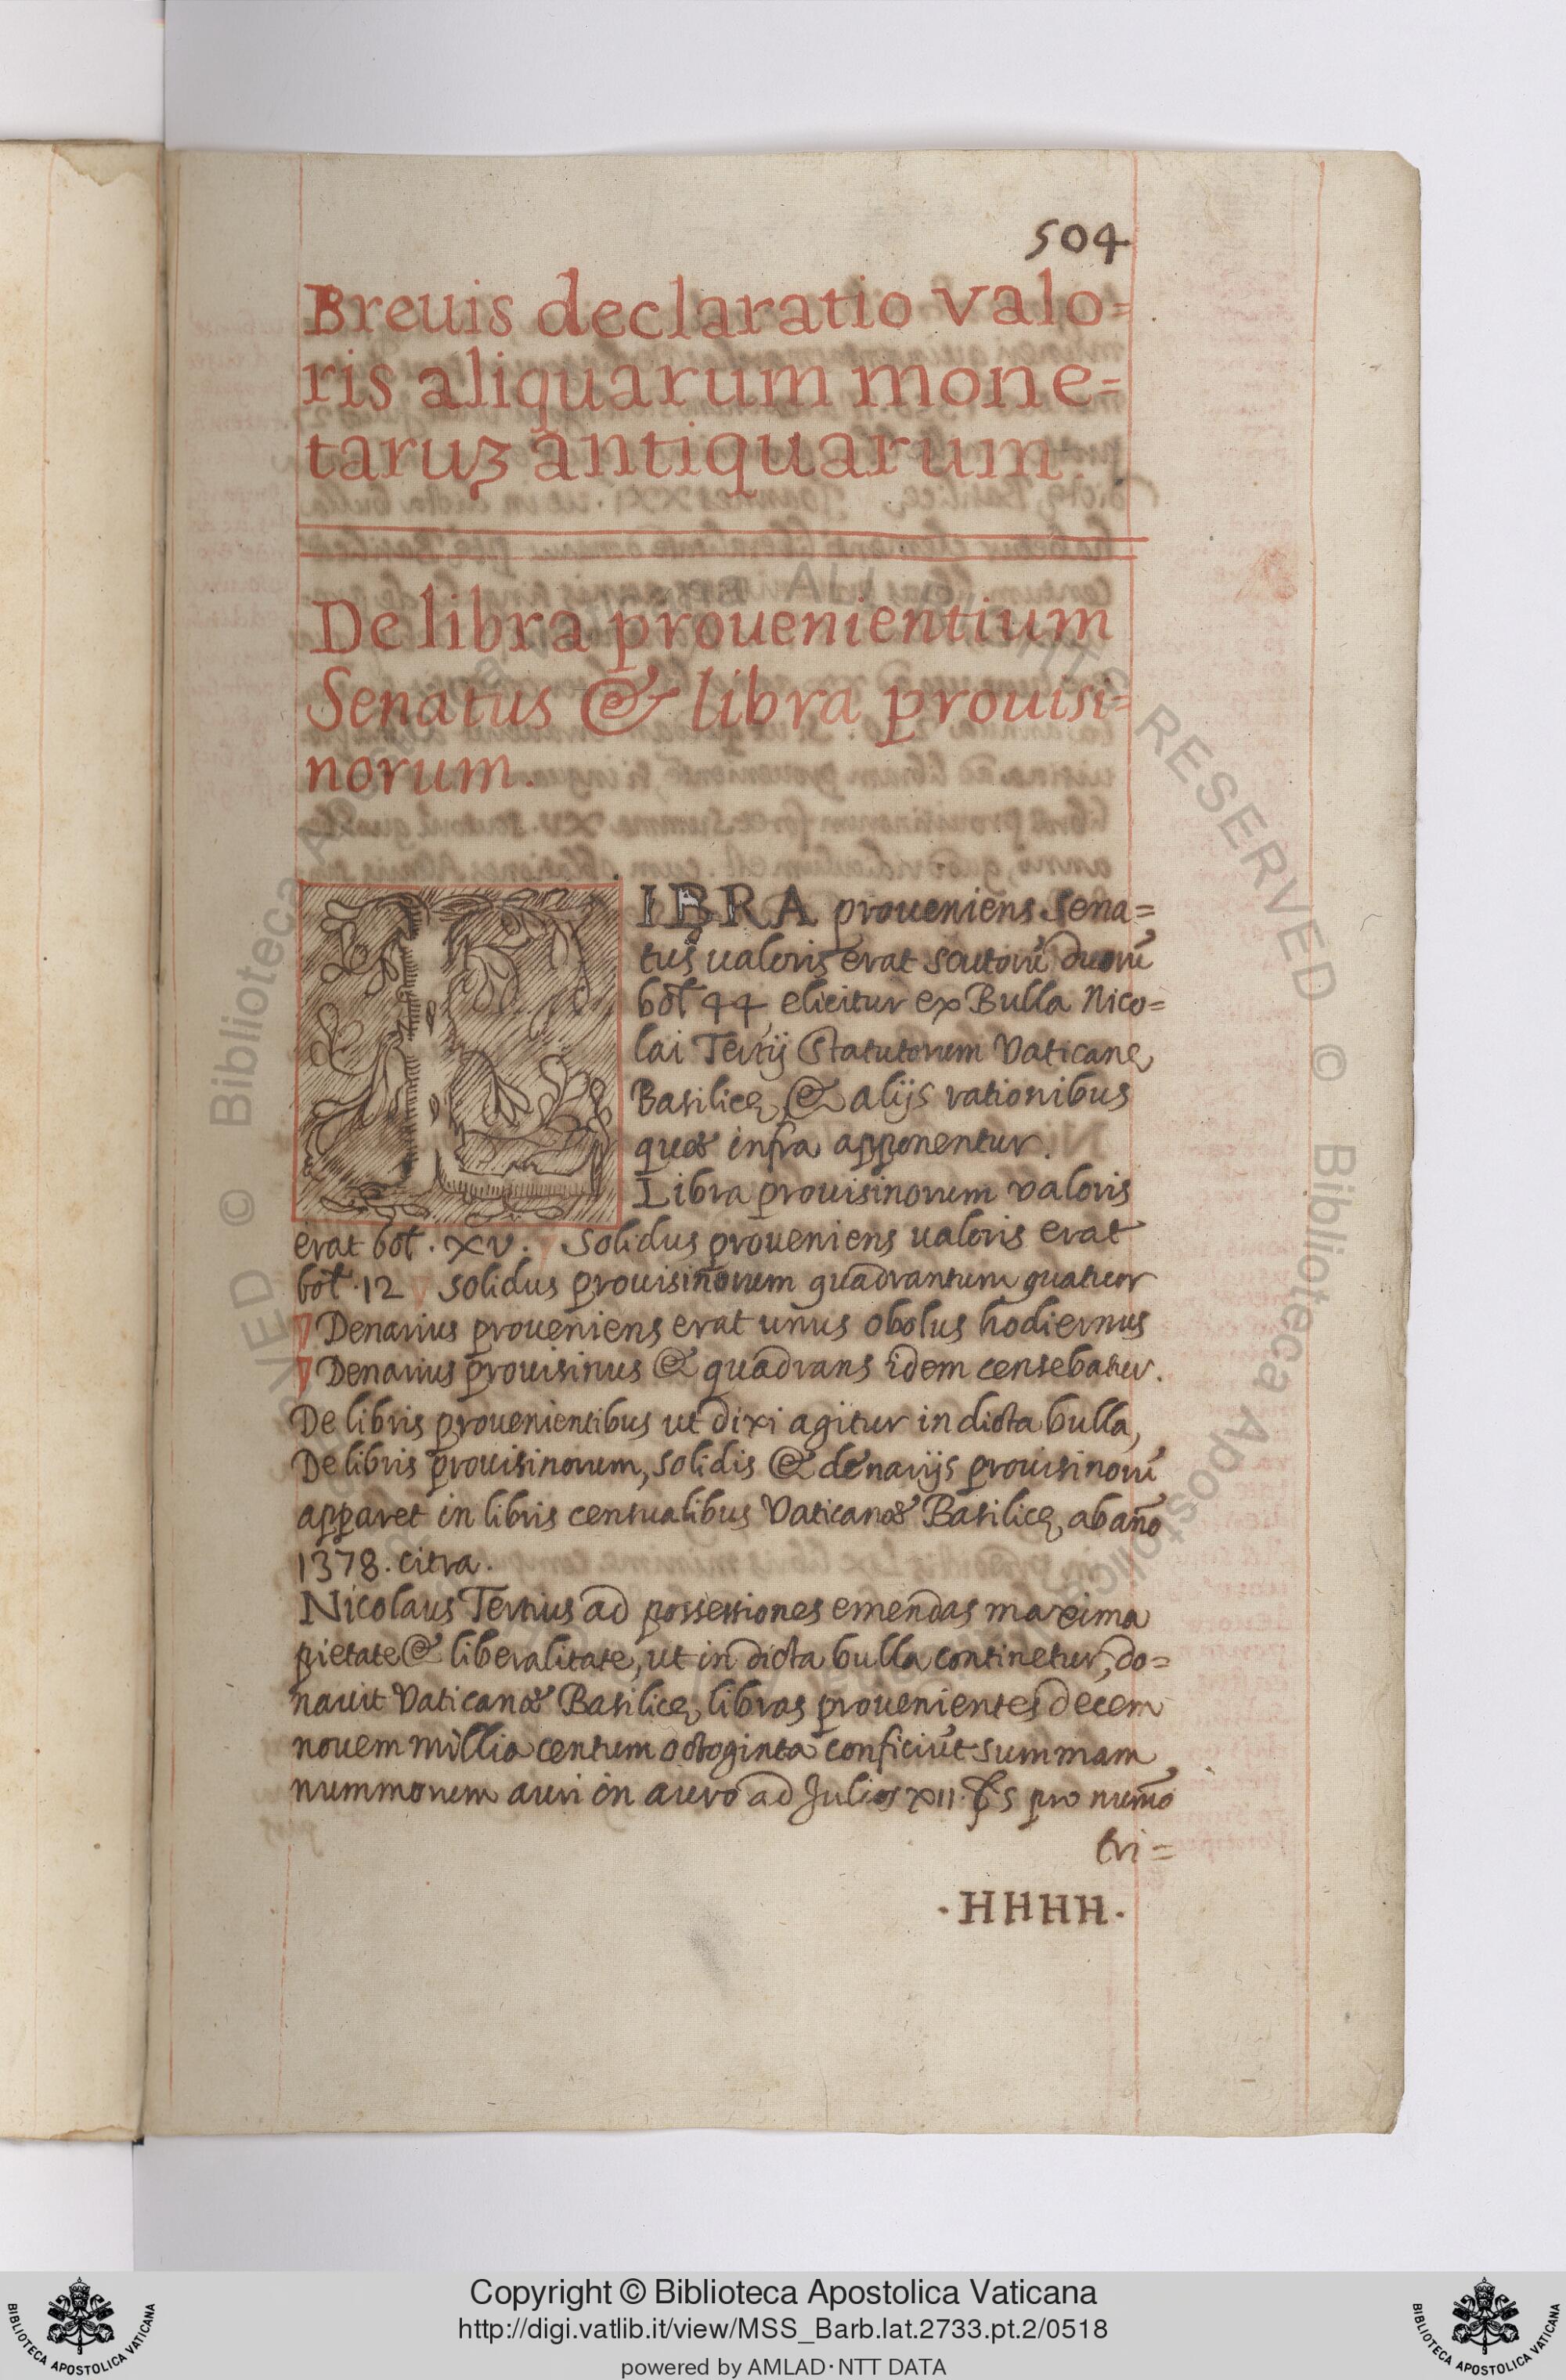 504
Breuis declaratio valo=
ris aliquarum mone=
taruʒ antiquarum.
De libra prouenientium
Senatus & libra prouisi=
norum.
LIBRA proueniens Sena=
tus ualoris erat scutorũ duorũ
bol̃ 44 elicitur ex Bulla Nico=
lai Tertij Statutorum Vaticanę
Basilicę, & alijs rationibus
quæ infra apponentur.
Libra prouisinorum valoris
erat bol̃. XV. Solidus proueniens ualoris erat
bol̃. 12 Solidus prouisinorum quadrantum quatuor
Denarius proueniens erat unus obolus hodiernus
Denarius prouisinus & quadrans idem censebatur.
De libris prouenientibus ut dixi agitur in dicta bulla,
De libris prouisinorum, solidis & denarijs prouisinorũ
apparet in libris censualibus Vaticanæ Basilicę, ab año
1378. citra.
Nicolaus Tertius ad possessiones emendas maxima
pietate & liberalitate, ut in dicta bulla continetur, do=
nauit Vaticanæ Basilicę, libras prouenientes decem
nouem millia centum octoginta conficiũt summam
nummorum auri in auro ad Julios XII. pro num̃o
tri=
·HHHH·
Copyright © Biblioteca Apostolica Vaticana
http://digi.vatlib.it/view/MSS_Barb.lat.2733.pt.2/0518
powered by AMLAD·NTT DATA
BIBLIOTECA APOSTOLICA VATICANA
BIBLIOTECA APOSTOLICA VATICANA